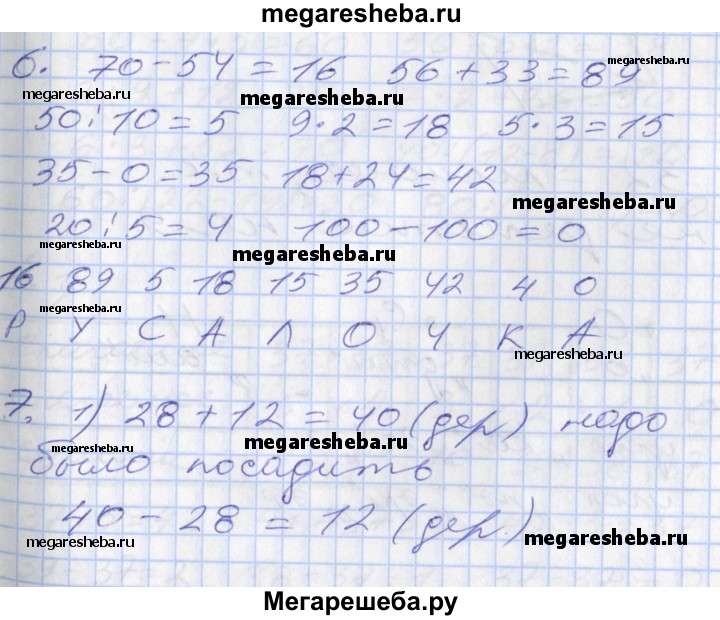 megaresheba.ru
6. 70 - 54 = 16 56 + 33 = 89
megaresheba.ru
megaresheba.ru
megaresheba.ru
50 : 10 = 5 9 · 2 = 18 5 · 3 = 15
35 - 0 = 35 18 + 24 = 42
megaresheba.ru
20 : 5 = 4 100 - 100 = 0
megaresheba.ru
megaresheba.ru
16 89 5 18 15 35 42 4 0
megaresheba.ru
Р У С А Л О Ч К А
megaresheba.ru
7. 1) 28 + 12 = 40 (дер) надо
megaresheba.ru
megaresheba.ru
было посадить
megaresheba.ru
40 - 28 = 12 (дер)
megaresheba.ru
megaresheba.ru
megaresheba.ru
Мегарешеба.ру